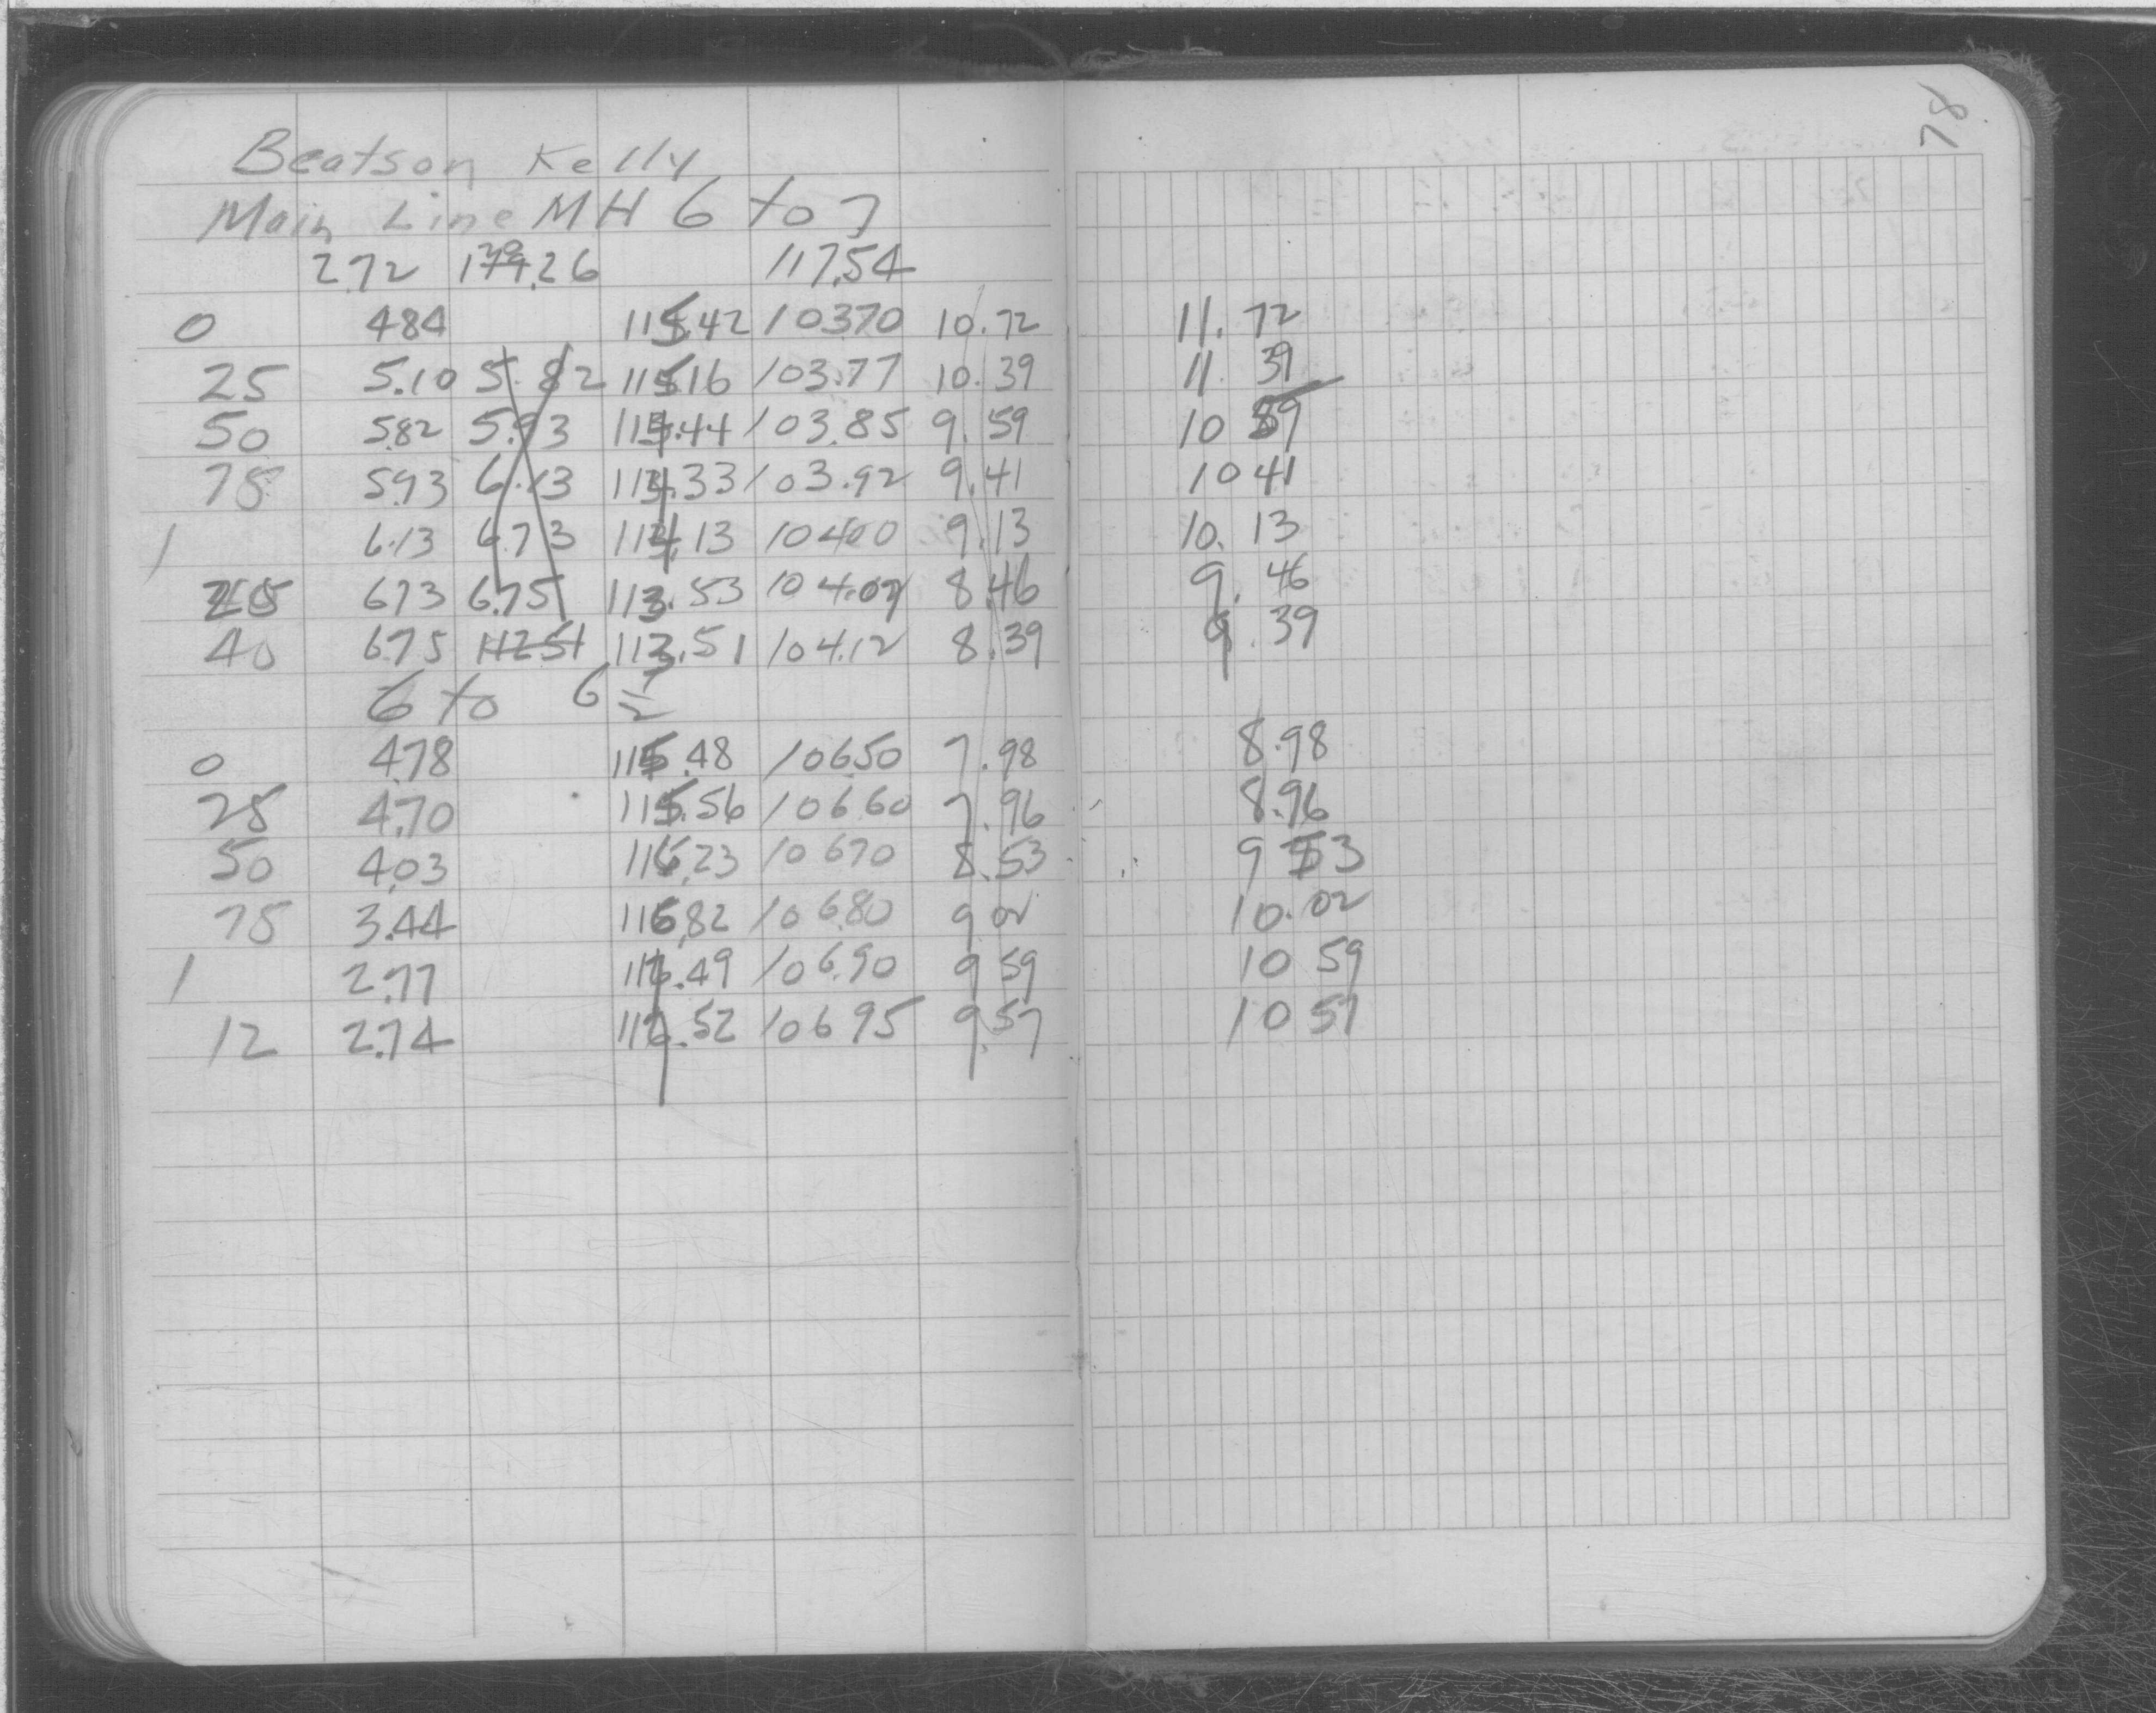 78
Beatson Kelly
Main Line MH 6 to 7
2.72 120.26 117.54
0 4.84 115.42 103.70 10.72 11.72
25 5.10 5.82 115.16 103.77 10.39 11.39
50 5.82 5.93 114.44 103.85 9.59 10 89
75 5.93 6.13 114.33 103.92 9.41 10 41
1 6.13 6.73 114.13 104.00 9.13 10.13
25 6.73 6.75 113.53 104.07 8.46 9.46
40 6.75 112.51 113.51 104.12 8.39 9.39
6 to 6
0 4.78 115.48 106.50 7.98 8.98
25 4.70 115.56 106.60 7.96 8.96
50 4.03 116.23 106.70 8.53 9 53
75 3.44 116.82 106.80 9 02 10.02
1 2.77 117.49 106.90 9 59 10 59
12 2.74 117.52 106.95 9.57 10 57